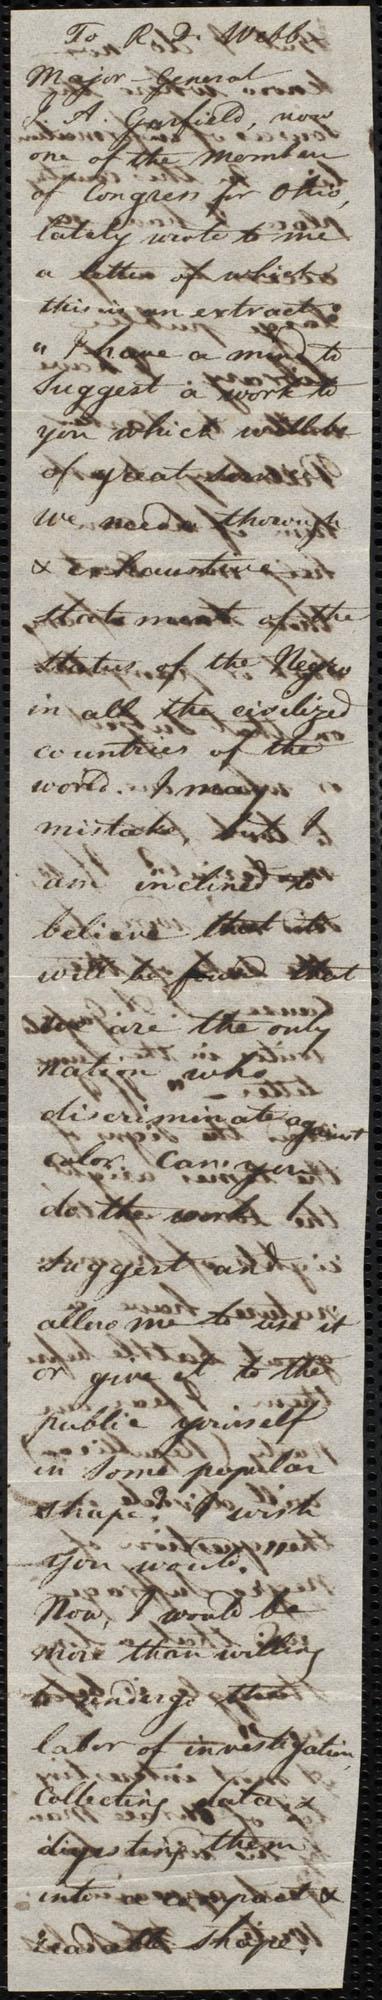 To R. D. Webb.
Major-General
J. A. Garfield, now
one of the members
of Congress for Ohio,
lately wrote to me
a letter of which
this is an extract:
" I have a mind to
suggest a work to
you which will be
of great
we need a thorough
& exhaustive
statement of the
status of the Negro
in all the civilized
countries of the
world. I may
mistake, but I
am inclined to
believe that it
will be found that
we are the only
nation who
discriminate against
color. Can you
do the work I
suggest and
allow me to use it
or give it to the
public yourself
in some popular
shape? I wish
you would."
Now, I would be
more than willing
to undergo the
labor of investigation,
collecting data &
digesting them
into a compact &
readable shape.